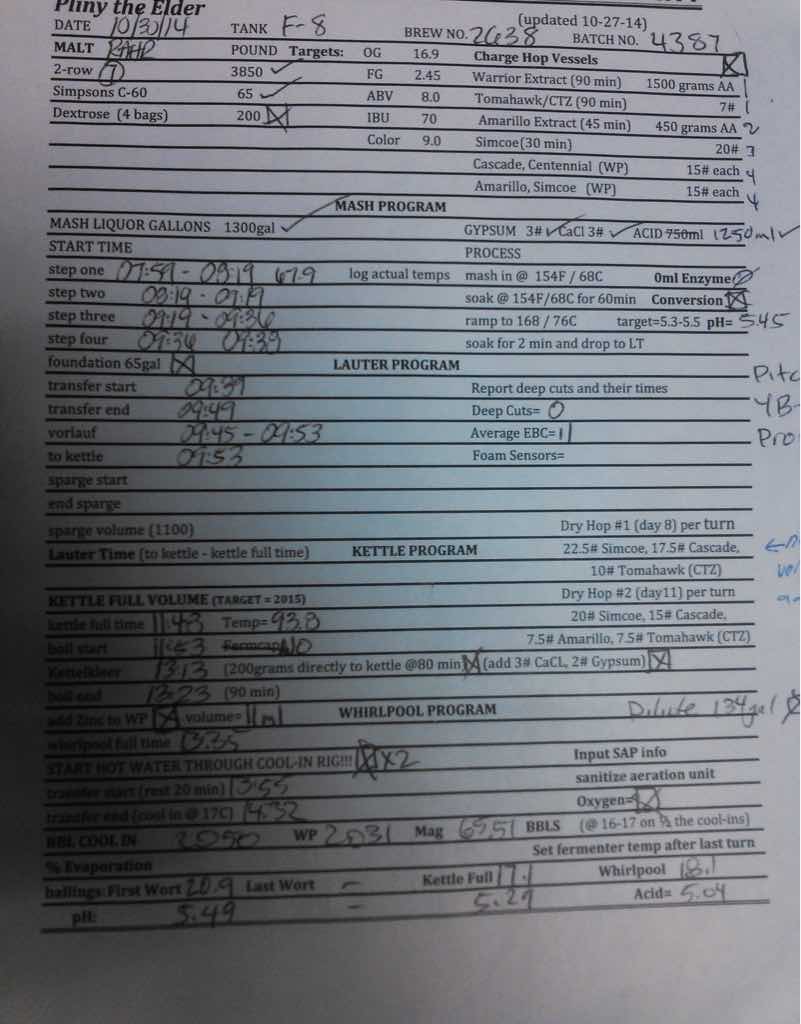 Pliny the Elder
(updated 10-27-14)
DATE 10/30/14 TANK F-8 BREW NO. 2638 BATCH NO. 4387
MALT RAHR POUND Targets: OG 16.9 Charge Hop Vessels
2-row 7 3850 ✓ FG 2.45 Warrior Extract (90 min) 1500 grams AA 1
Simpsons C-60 65 ✓ ABV 8.0 Tomahawk/CTZ (90 min) 7# 1
Dextrose (4 bags) 200 IBU 70 Amarillo Extract (45 min) 450 grams AA 2
Color 9.0 Simcoe(30 min) 20# 3
Cascade, Centennial (WP) 15# each 4
Amarillo, Simcoe (WP) 15# each 4
MASH PROGRAM
MASH LIQUOR GALLONS 1300gal ✓ GYPSUM 3# ✓ CaCl 3# ✓ ACID 750ml 1250ml ✓
START TIME PROCESS
step one 07:59 - 08:19 67.9 log actual temps mash in @ 154F / 68C 0ml Enzyme
step two 08:19 - 09:19 soak @ 154F/68C for 60min Conversion
step three 09:19 - 09:36 ramp to 168 / 76C target=5.3-5.5 pH= 5.45
step four 09:36 09:39 soak for 2 min and drop to LT
foundation 65gal LAUTER PROGRAM
transfer start 09:39 Report deep cuts and their times
transfer end 09:49 Deep Cuts= 0
vorlauf 09:45 - 09:53 Average EBC= 11
to kettle 09:53 Foam Sensors=
sparge start
end sparge
sparge volume (1100) Dry Hop #1 (day 8) per turn
Lauter Time (to kettle - kettle full time) KETTLE PROGRAM 22.5# Simcoe, 17.5# Cascade,
10# Tomahawk (CTZ)
KETTLE FULL VOLUME (TARGET = 2015) Dry Hop #2 (day11) per turn
kettle full time 11:43 Temp= 93.8 20# Simcoe, 15# Cascade,
boil start Fermcap NO 7.5# Amarillo, 7.5# Tomahawk (CTZ)
Kettelkleer 13:13 (200grams directly to kettle @80 min (add 3# CaCL, 2# Gypsum)
boil end 13:23 (90 min)
add Zinc to WP volume= 11ml WHIRLPOOL PROGRAM Dilute 134gal
whirlpool full time 13:35
START HOT WATER THROUGH COOL-IN RIG!!! X2 Input SAP info
transfer start (rest 20 min) 13:55 sanitize aeration unit
transfer end (cool in @ 17C) 14:32 Oxygen=
BBL COOL IN 2050 WP 2031 Mag 65.51 BBLS (@ 16-17 on ½ the cool-ins)
% Evaporation Set fermenter temp after last turn
ballings: First Wort 20.9 Last Wort - Kettle Full 17.1 Whirlpool 18.1
pH: 5.49 - 5.29 Acid= 5.04